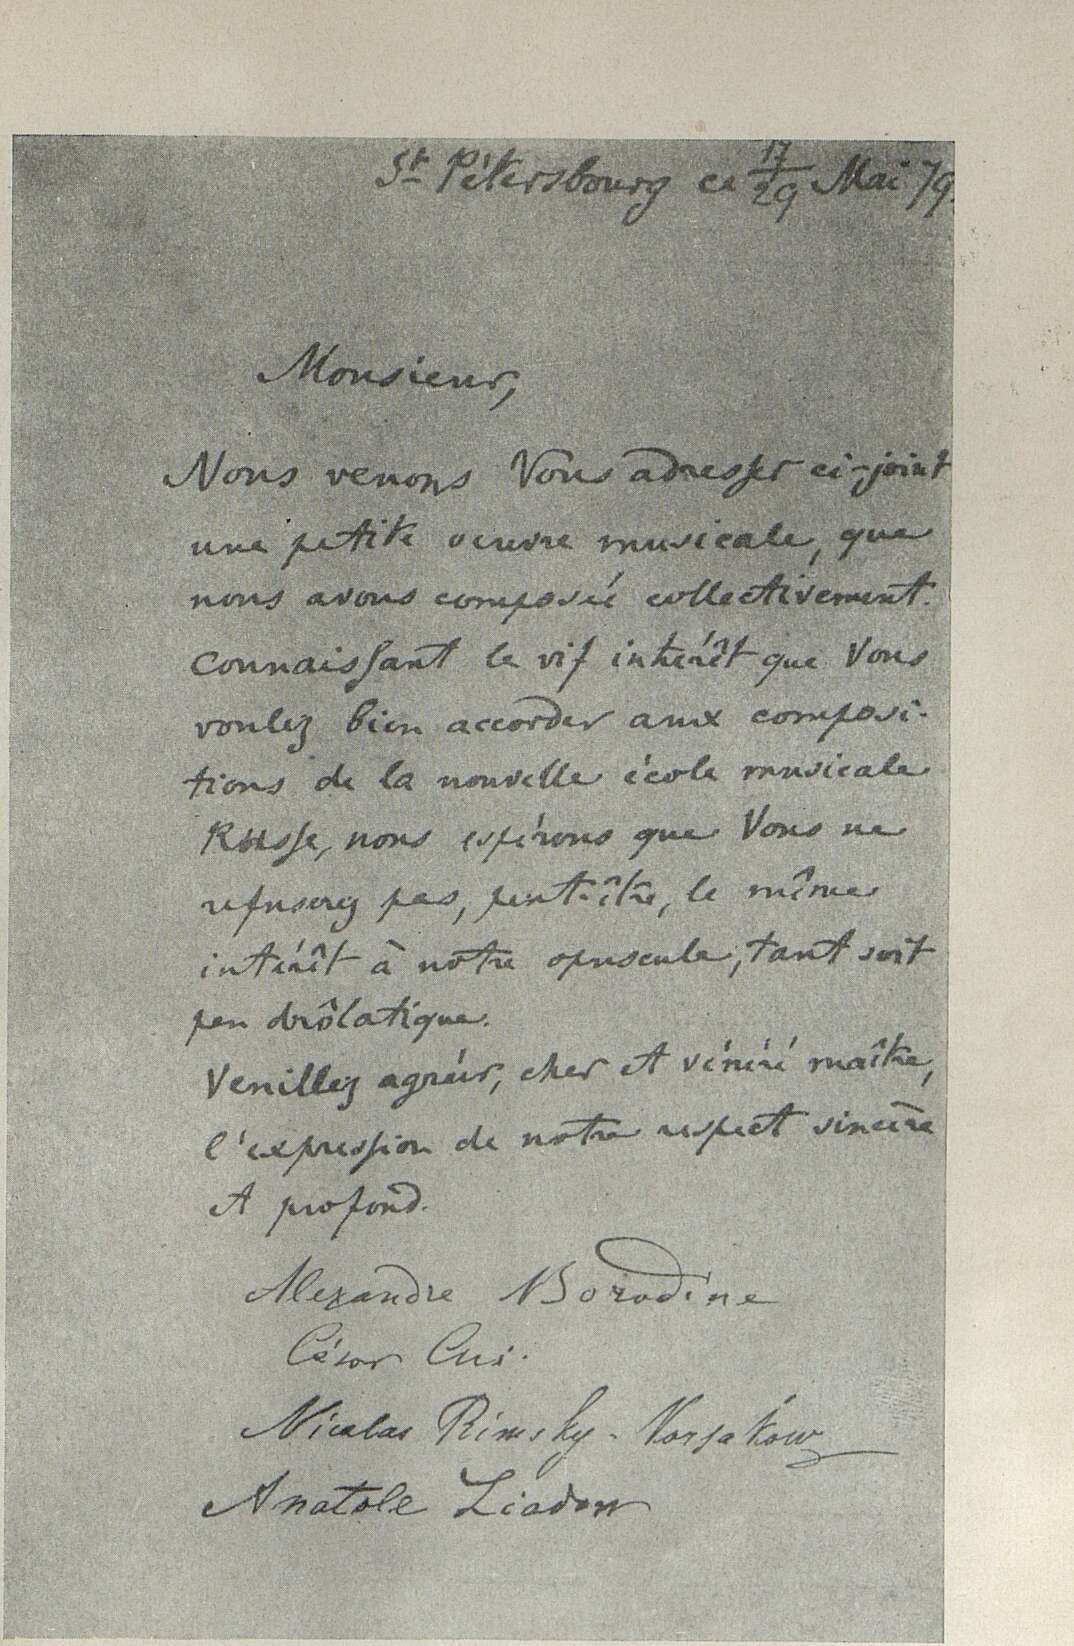 St Pétersbourg ce 17/29 Mai 79.
Monsieur,
Nous venons Vous adresser ci-joint
une petite oeuvre musicale, que
nous avons composée collectivement.
Connaissant le vif intérêt que Vous
voulez bien accorder aux composi-
tions de la nouvelle école musicale
Russe, nous espérons que Vous ne
refuserez pas, peut-être, le même
intérêt à notre opuscule, tant soit
peu drôlatique.
Veuillez agréer, cher et vénéré maître,
l'expression de notre respect sincère
et profond.
Alexandre Borodine
César Cui.
Nicolas Rimsky-Korsakow
Anatole Liadow